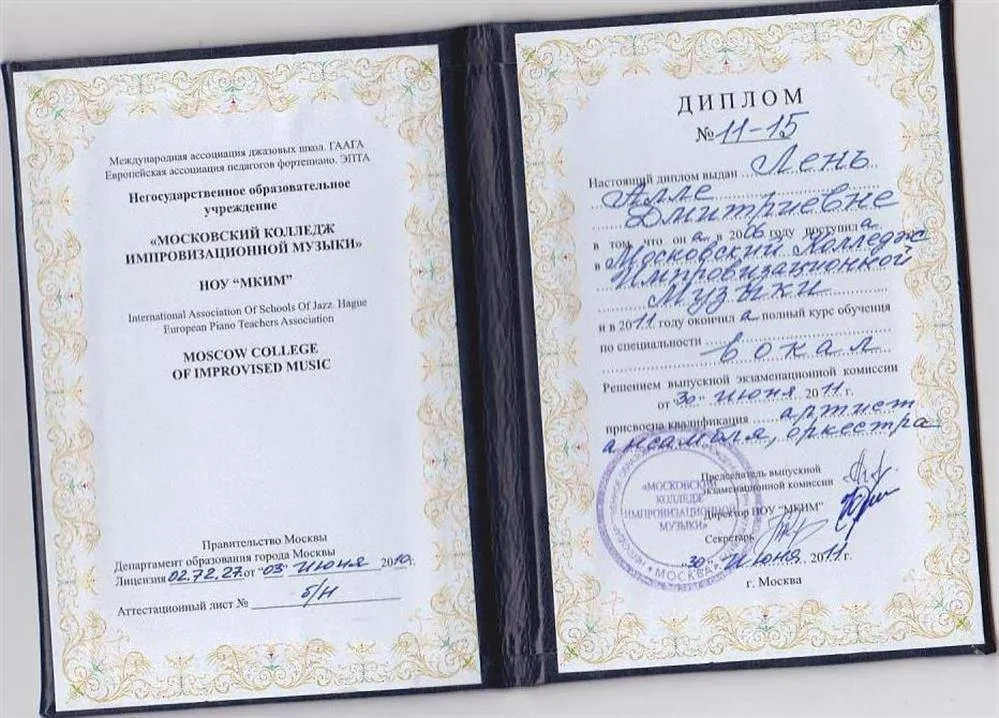 Международная ассоциация джазовых школ. ГААГА
Европейская ассоциация педагогов фортепиано. ЭПТА
Негосударственное образовательное
учреждение
«МОСКОВСКИЙ КОЛЛЕДЖ
ИМПРОВИЗАЦИОННОЙ МУЗЫКИ»
НОУ “МКИМ”
International Association Of Schools Of Jazz. Hague
European Piano Teachers Association
MOSCOW COLLEGE
OF IMPROVISED MUSIC
Правительство Москвы
Департамент образования города Москвы
Лицензия 02.72.27 от "03" июня 2010г.
Аттестационный лист № б/н
ДИПЛОМ
№ 11-15
Настоящий диплом выдан Лень
Алле
Дмитриевне
в том, что она в 2006 году поступила
в Московский Колледж
Импровизационной
Музыки
и в 2011 году окончила полный курс обучения
по специальности
вокал
Решением выпускной экзаменационной комиссии
от "30" июня 2011 г.
присвоена квалификация артист
ансамбля, оркестра
Председатель выпускной
экзаменационной комиссии
Директор НОУ “МКИМ”
Секретарь
"30" июня 2011г.
г. Москва
«МОСКОВСКИЙ
КОЛЛЕДЖ
ИМПРОВИЗАЦИОННОЙ
МУЗЫКИ»
МОСКВА